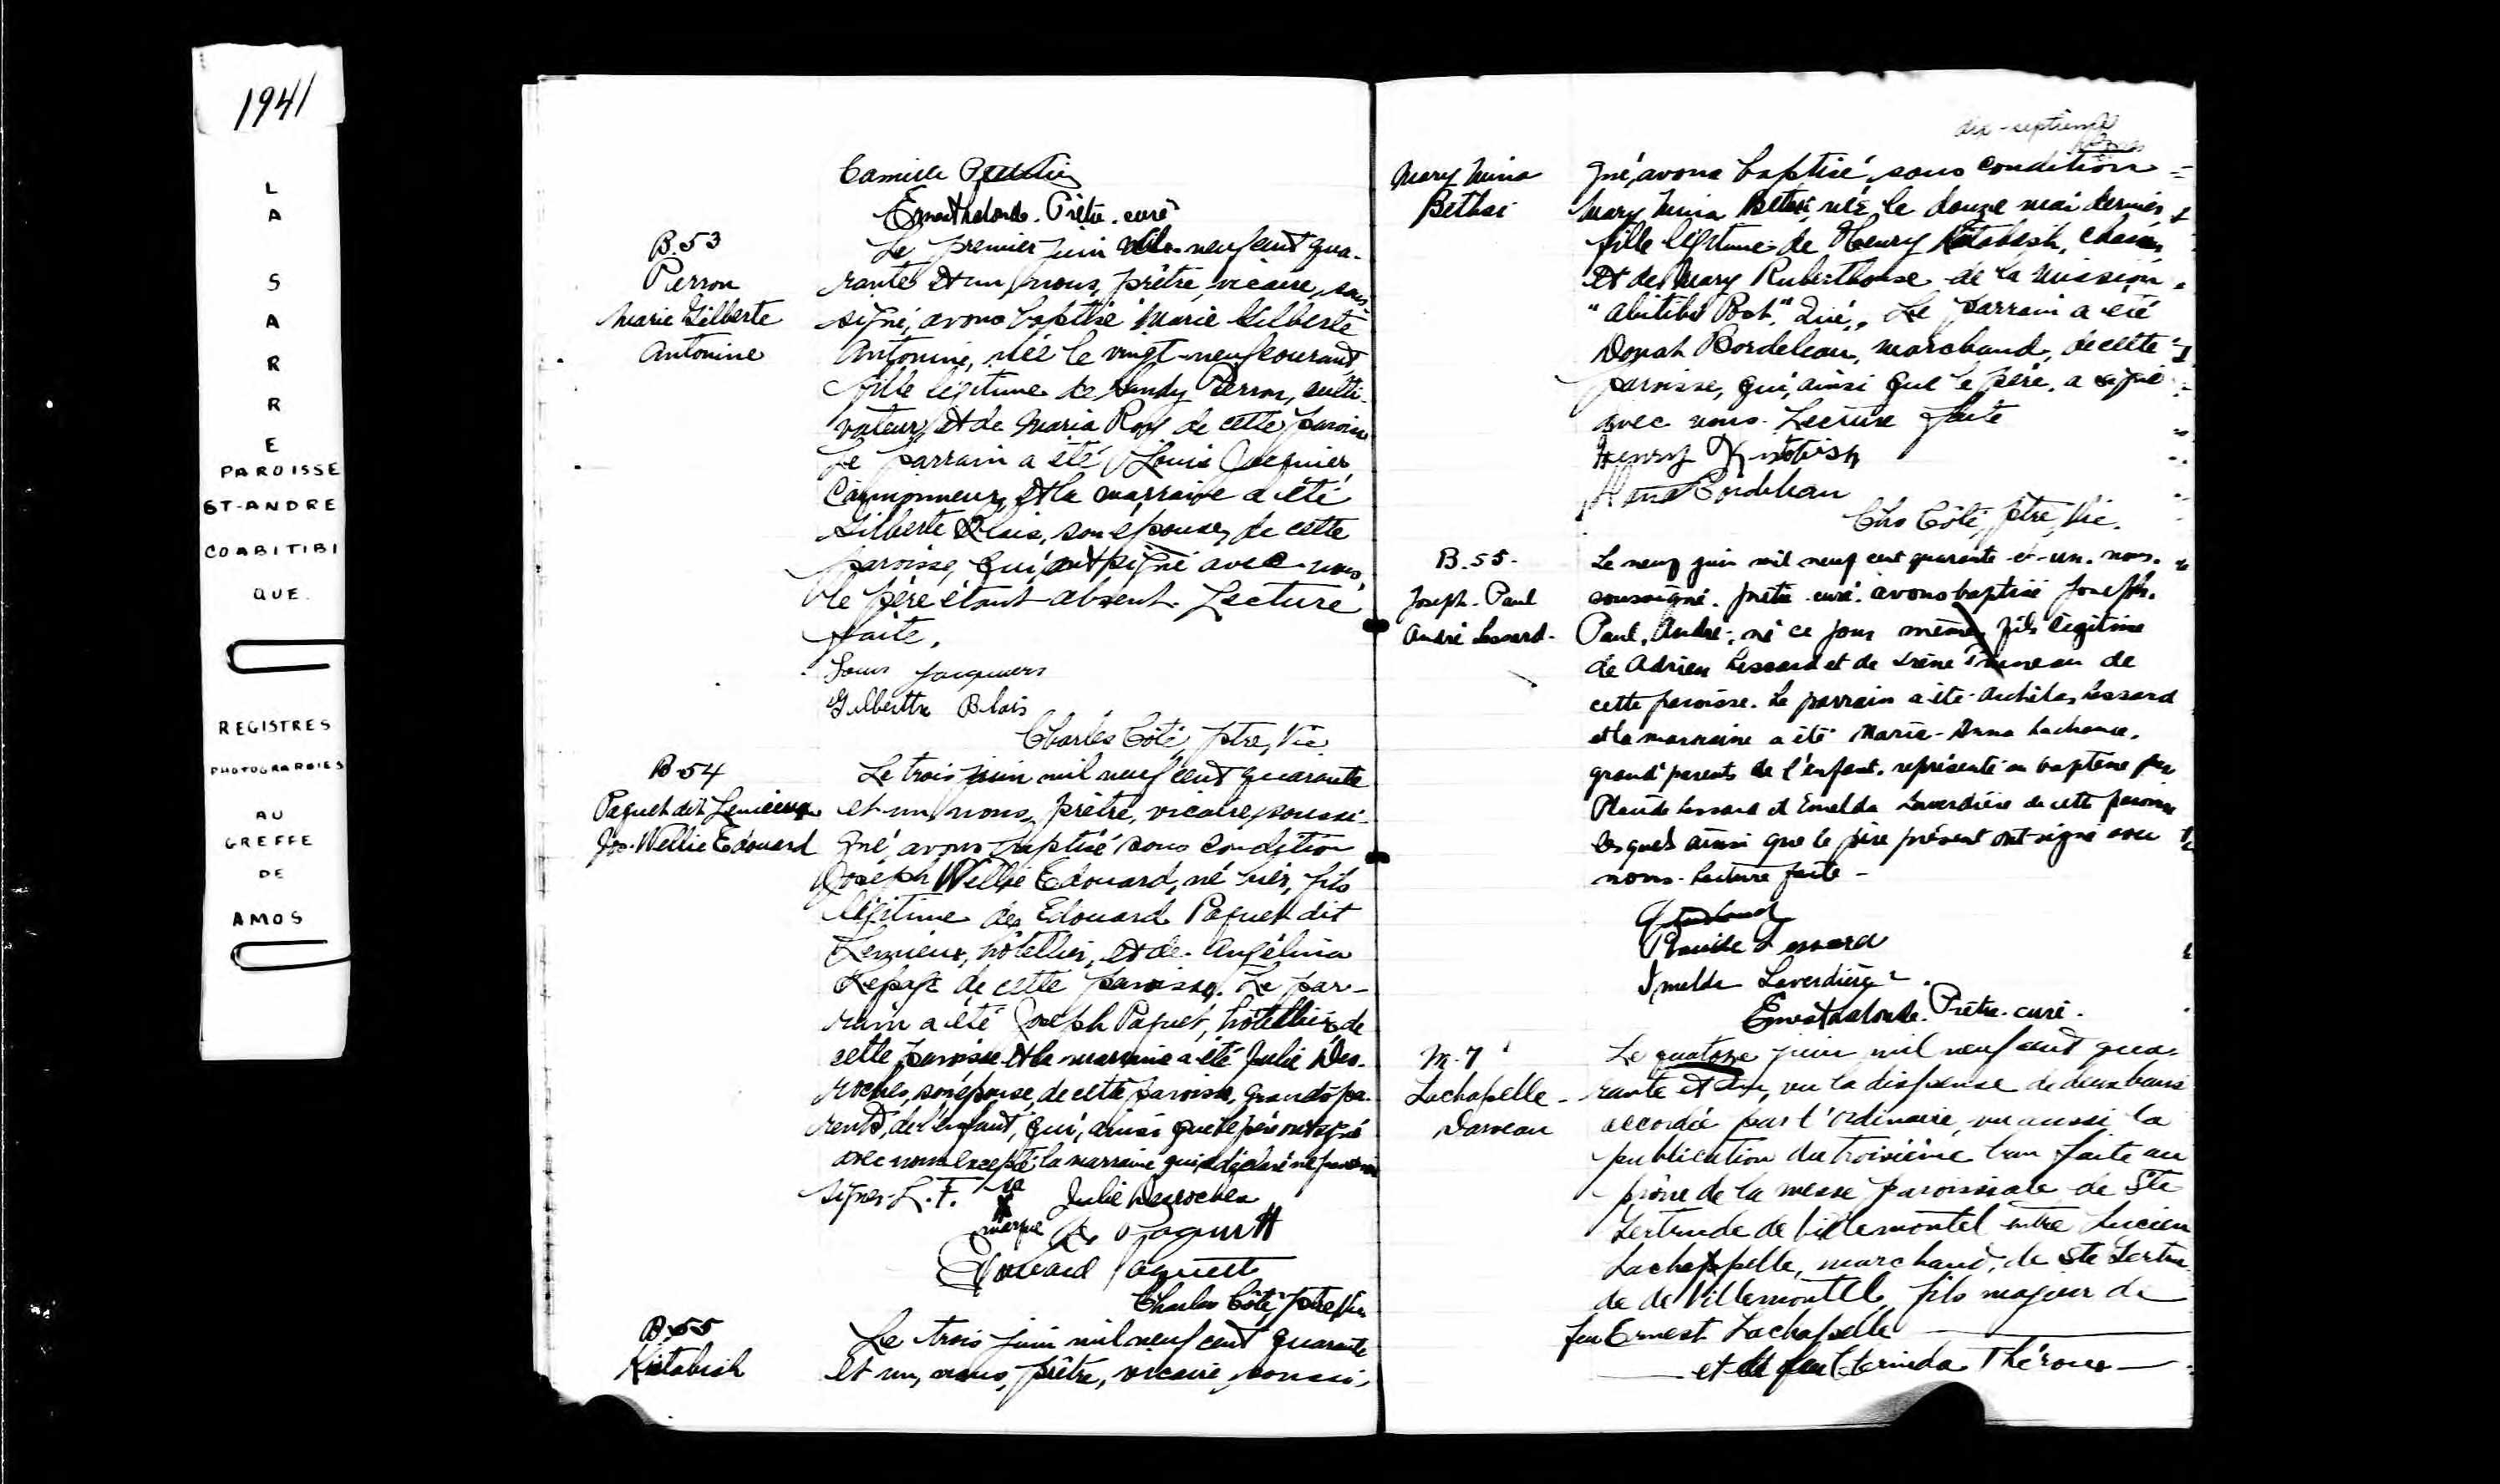 1941
L
A
S
A
R
R
E
PAROISSE
ST-ANDRE
CO ABITIBI
QUE.
REGISTRES
PHOTOGRAPHIES
AU
GREFFE
DE
AMOS
Camille
Ernest Lalonde. Prêtre. curé
B.53
Perron
Marie Gilberte
Antonine
Le premier juin mil neuf cent qua-
rante et un, nous, prêtre, vicaire, sous-
signé, avons baptisé Marie Gilberte
Antonine, née le vingt-neuf courant,
fille légitime de Perron, culti-
vateur, et de Maria Roy de cette paroisse
Le parrain a été Louis Jacques,
Camionneur, et la marraine a été
Gilberte Blais, son épouse, de cette
paroisse, qui ont signé avec nous,
le père étant absent. Lecture
faite.
Louis
Gilberte Blais
Charles Côté, ptre, Vic
B-54
Paquet dit Lemieux
Jos. Wellie Edouard
Le trois juin mil neuf cent quarante
et un, nous, prêtre, vicaire, soussi-
gné, avons baptisé sous condition
Joseph Wellie Edouard, né hier, fils
légitime de Edouard Paquet dit
Lemieux, hôtellier, et de Angélina
Lepage de cette paroisse. Le par-
rain a été Joseph Paquet, hôtellier, de
cette paroisse et la marraine a été Julie Des-
roches, son épouse, de cette paroisse, grands-pa-
rents, de l'enfant, qui, ainsi que le père ont signé
avec nous excepté la marraine qui a déclaré ne pas
signer. L.F. sa Julie Desroches
X
marque
Edouard Paquette
Charles Côté, ptre, Vic
B-55
Kistabish
Le trois juin mil neuf cent quarante
et un, nous, prêtre, vicaire, soussi-
dix-septième
Mary Mina
Bethsi
gné, avons baptisé, sous condition
Mary Mina Bethsi, née le douze mai dernier,
fille légitime de Henry Kistabish,
et de Mary Ruperthouse de la mission
"Abitibi Post", Qué.. Le parrain a été
Donat Bordeleau, marchand, de cette
paroisse, qui, ainsi que le père, a signé
avec nous. Lecture faite
Henry Kistabish
Bordeleau
Chs Côté, ptre, Vic.
B.55-
Joseph-Paul
André Lessard-
Le neuf juin mil neuf cent quarante-et-un. nous.
soussigné. prêtre-curé. avons baptisé Joseph.
Paul. André., né ce jour même, fils légitime
de Adrien Lessard et de Irène Pruneau de
cette paroisse. Le parrain a été Lessard
et la marraine a été Marie-Anna Lachance.
grand'parents de l'enfant. représenté au baptême par
Plaude Lessard et Emelda Laverdière de cette paroisse
lesquels ainsi que le père présent ont signé avec
nous. Lecture faite-
Plaude Lessard
Imelda Laverdière
Ernest Lalonde. Prêtre-curé.
M-7
Lachapelle-
Darveau
Le quatorze juin mil neuf cent qua-
rante et un, vu la dispense de deux bans
accordée par l'ordinaire, vu aussi la
publication du troisième ban faite au
prône de la messe paroissiale de Ste
Gertrude de Villemontel entre Lucien
Lachapelle, marchand, de Ste Gertru-
de de Villemontel, fils majeur de
feu Ernest Lachapelle
et de feu Clorinda Théroux